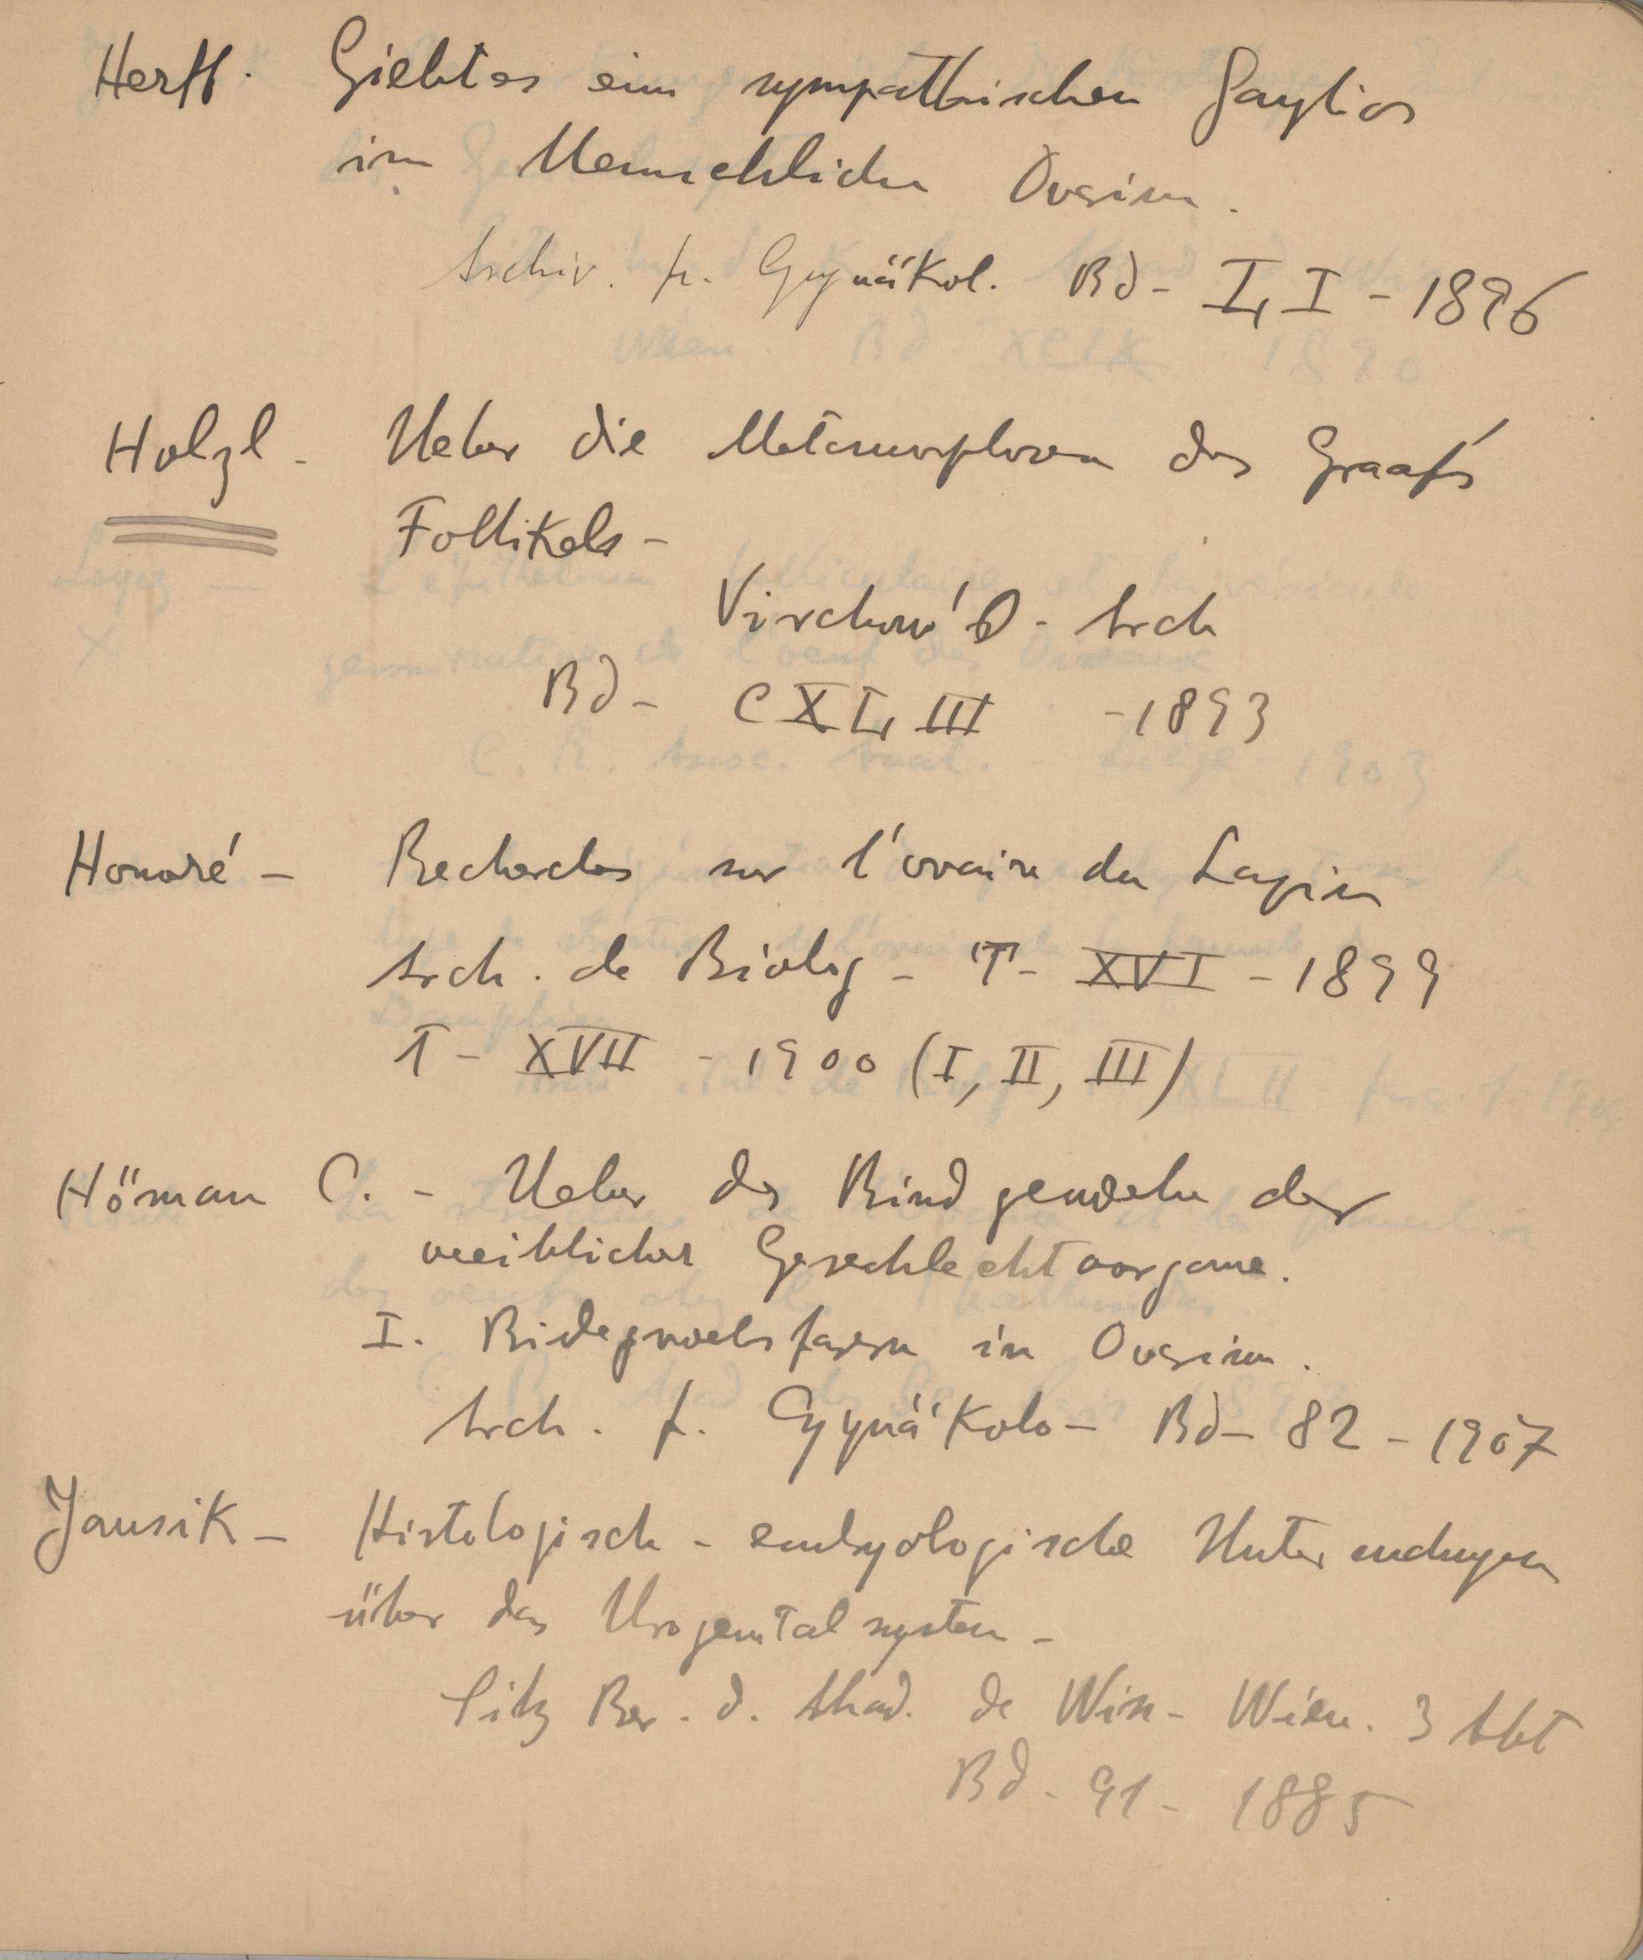 Herff. Giebt es ein sympathischen Ganglion
im Menschlichen Ovarium.
Archiv. f. Gynäkol. Bd - LI - 1896
Holzl - Ueber die Metamorphosen des Graaf's
Follikels -
Virchow's - Arch
Bd - CXLIII - 1893
Honoré - Recherches sur l'ovaire du Lapin
Arch. de Biolog - T - XVI - 1899
T - XVII - 1900 (I, II, III)
Höman C. - Ueber das Bindgeweba der
weiblicher Geschlechtorgane.
I. Bidegwebsfasern in Ovarium.
Arch. f. Gynäkolo - Bd - 82 - 1907
Janosik - Histologisch - embryologische Untersuchungen
über das Urogenitalsystem -
Sitz Ber. d. Akad. de Wiss - Wien. 3 Abt
Bd - 91 - 1885